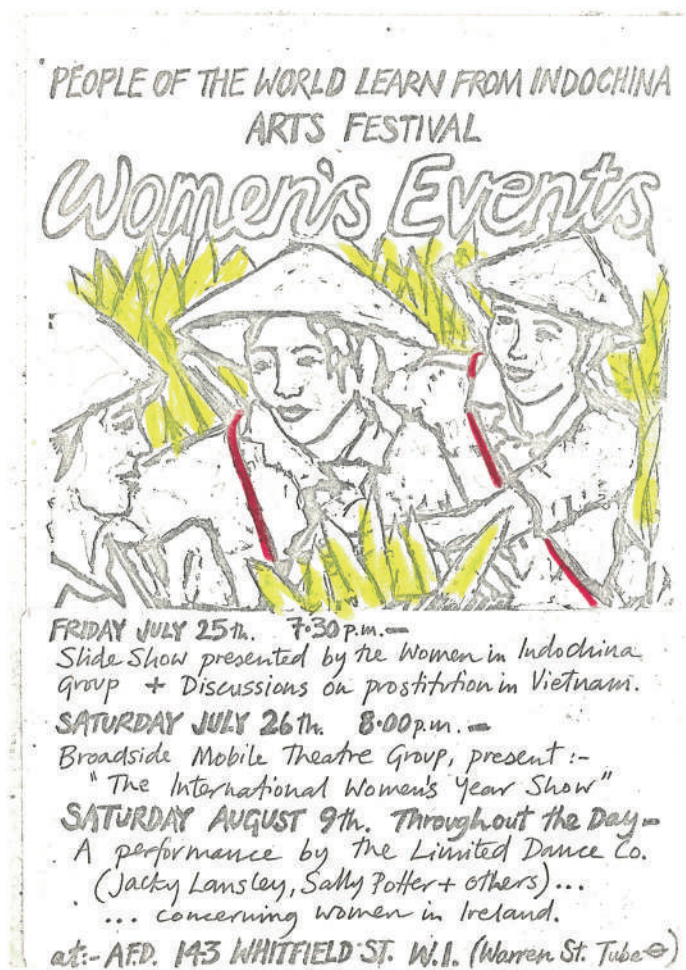 PEOPLE OF THE WORLD LEARN FROM INDOCHINA
ARTS FESTIVAL
Women's Events
FRIDAY JULY 25th. 7·30 p.m. —
Slide Show presented by the Women in Indochina
Group + Discussions on prostitution in Vietnam.
SATURDAY JULY 26th. 8·00 p.m. —
Broadside Mobile Theatre Group, present :-
"The International Women's Year Show"
SATURDAY AUGUST 9th. Throughout the Day —
A performance by the Limited Dance Co.
(Jacky Lansley, Sally Potter + others)...
... concerning women in Ireland.
at:- A.F.D. 143 WHITFIELD ST. W.1. (Warren St. Tube)